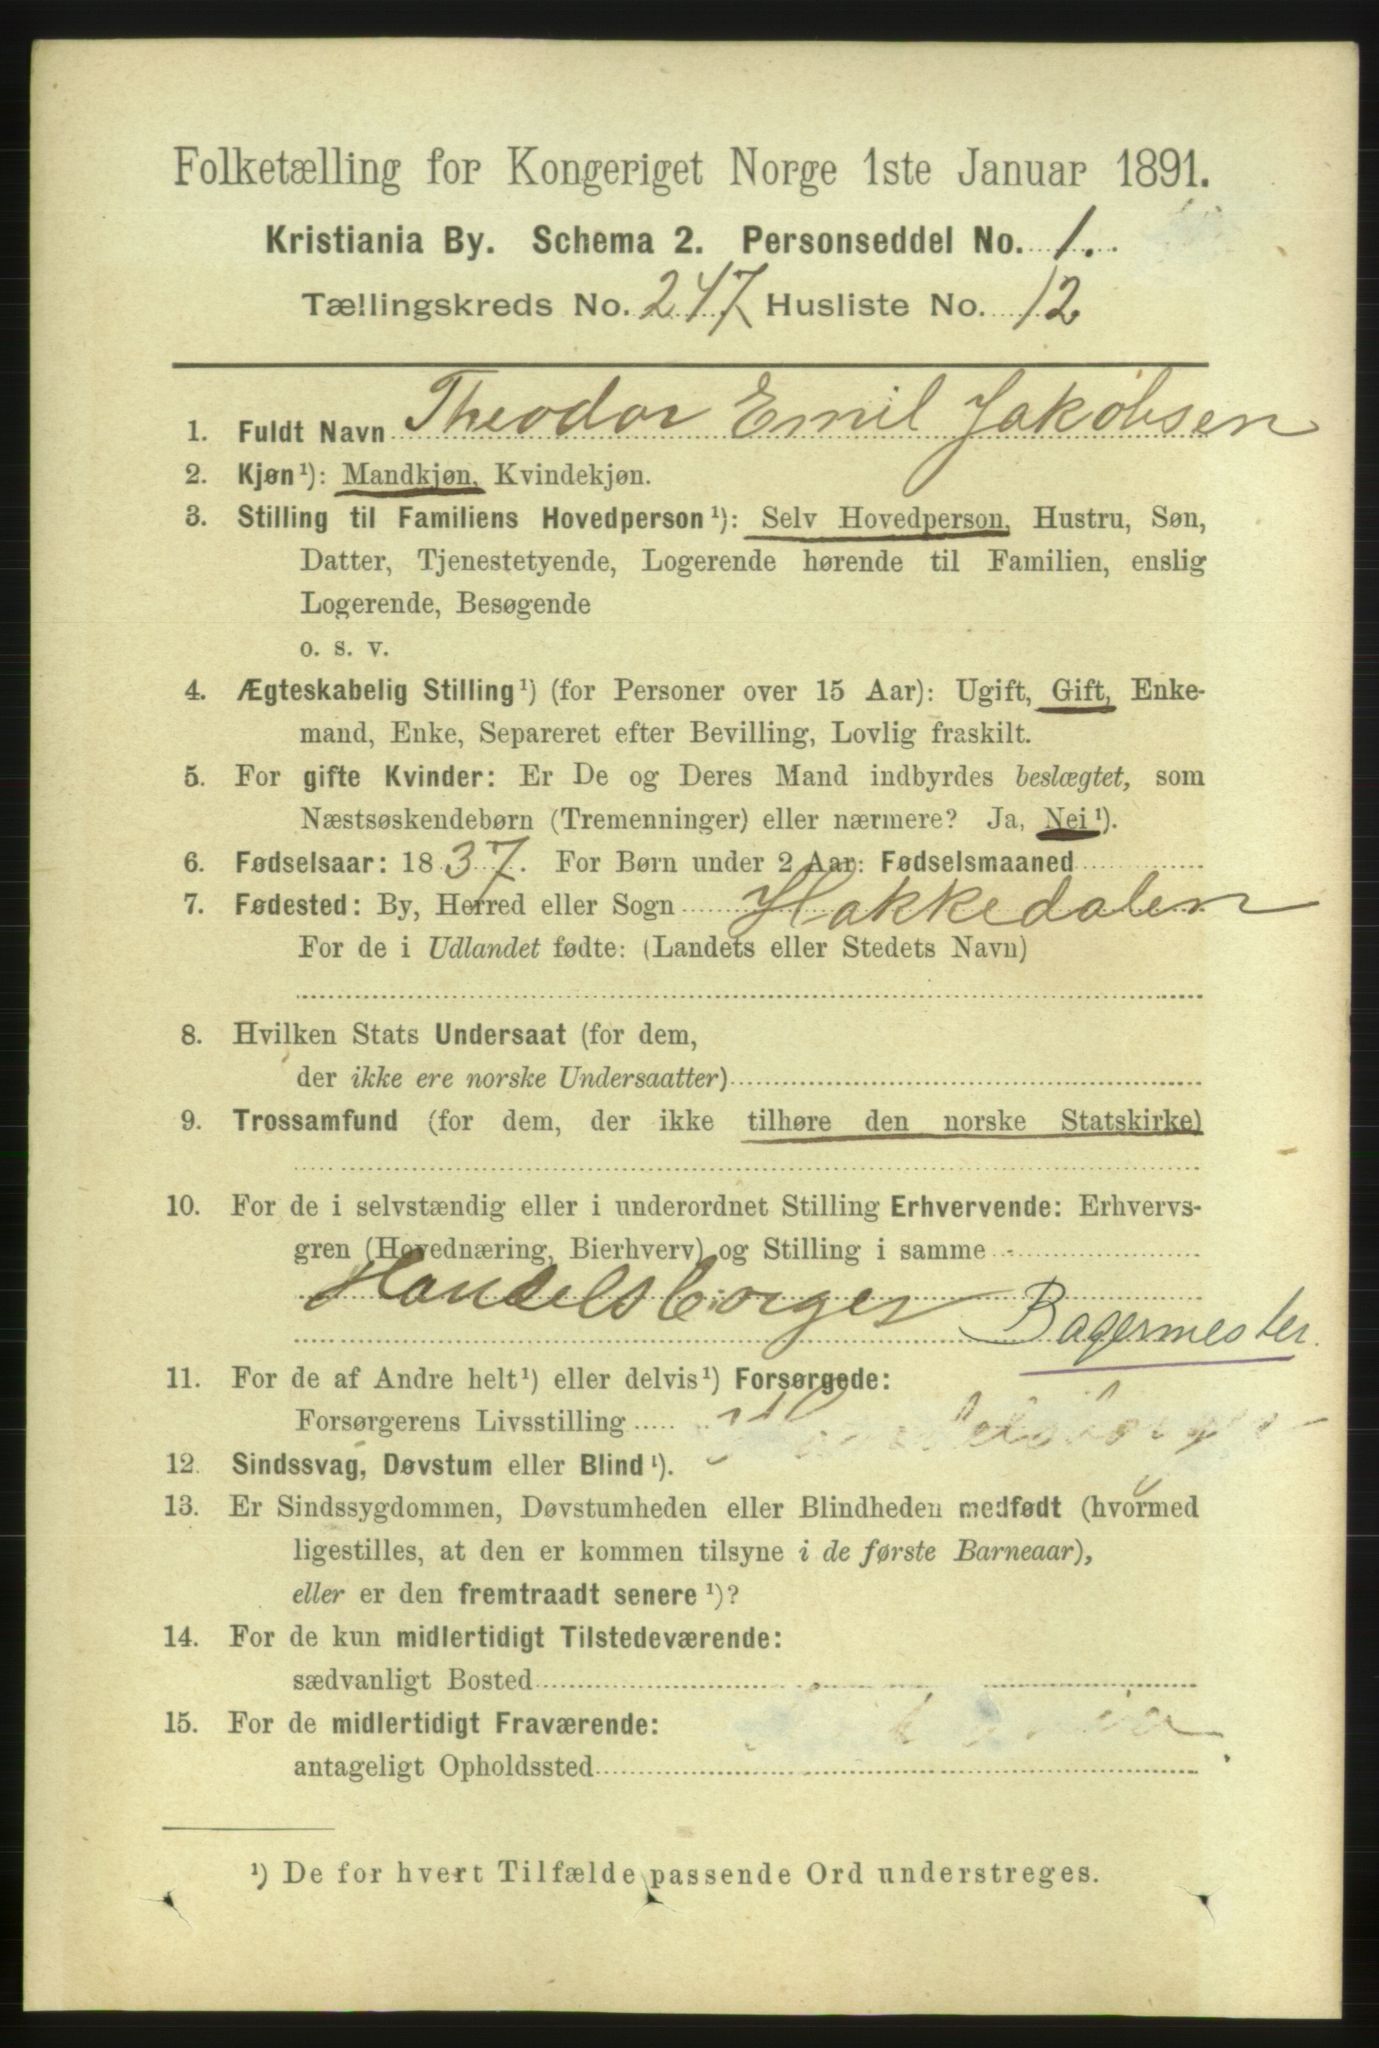 Folketælling for Kongeriget Norge 1ste Januar 1891.
Kristiania By. Schema 2. Personseddel No. 1.
Tællingskreds No. 247 Husliste No. 12
1. Fuldt Navn Theodor Emil Jakobsen
2. Kjøn ¹): Mandkjøn, Kvindekjøn.
3. Stilling til Familiens Hovedperson ¹): Selv Hovedperson, Hustru, Søn,
Datter, Tjenestetyende, Logerende hørende til Familien, enslig
Logerende, Besøgende
o. s. v.
4. Ægteskabelig Stilling ¹) (for Personer over 15 Aar): Ugift, Gift, Enke-
mand, Enke, Separeret efter Bevilling, Lovlig fraskilt.
5. For gifte Kvinder: Er De og Deres Mand indbyrdes beslægtet, som
Næstsøskendebørn (Tremenninger) eller nærmere? Ja, Nei ¹).
6. Fødselsaar: 1837. For Børn under 2 Aar: Fødselsmaaned
7. Fødested: By, Herred eller Sogn Hakkedalen
For de i Udlandet fødte: (Landets eller Stedets Navn)
8. Hvilken Stats Undersaat (for dem,
der ikke ere norske Undersaatter)
9. Trossamfund (for dem, der ikke tilhøre den norske Statskirke)
10. For de i selvstændig eller i underordnet Stilling Erhvervende: Erhvervs-
gren (Hovednæring, Bierhverv) og Stilling i samme
Handelsborger
Bagermester.
11. For de af Andre helt ¹) eller delvis ¹) Forsørgede:
Forsørgerens Livsstilling Handelsborger
12. Sindssvag, Døvstum eller Blind ¹).
13. Er Sindssygdommen, Døvstumheden eller Blindheden medfødt (hvormed
ligestilles, at den er kommen tilsyne i de første Barneaar),
eller er den fremtraadt senere ¹)?
14. For de kun midlertidigt Tilstedeværende:
sædvanligt Bosted
15. For de midlertidigt Fraværende:
antageligt Opholdssted
¹) De for hvert Tilfælde passende Ord understreges.